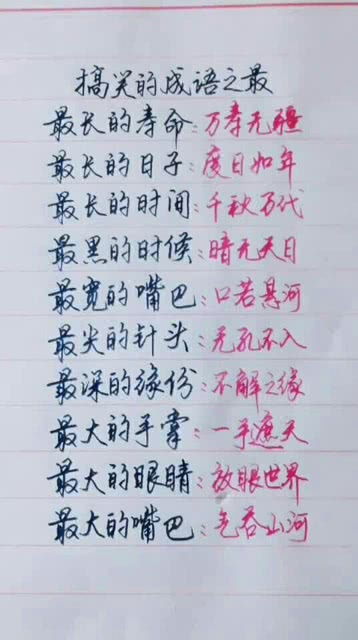 搞笑的成语之最
最长的寿命:万寿无疆
最长的日子:度日如年
最长的时间:千秋万代
最黑的时候:暗无天日
最宽的嘴巴:口若悬河
最尖的针头:无孔不入
最深的缘份:不解之缘
最大的手掌:一手遮天
最大的眼睛:放眼世界
最大的嘴巴:气吞山河